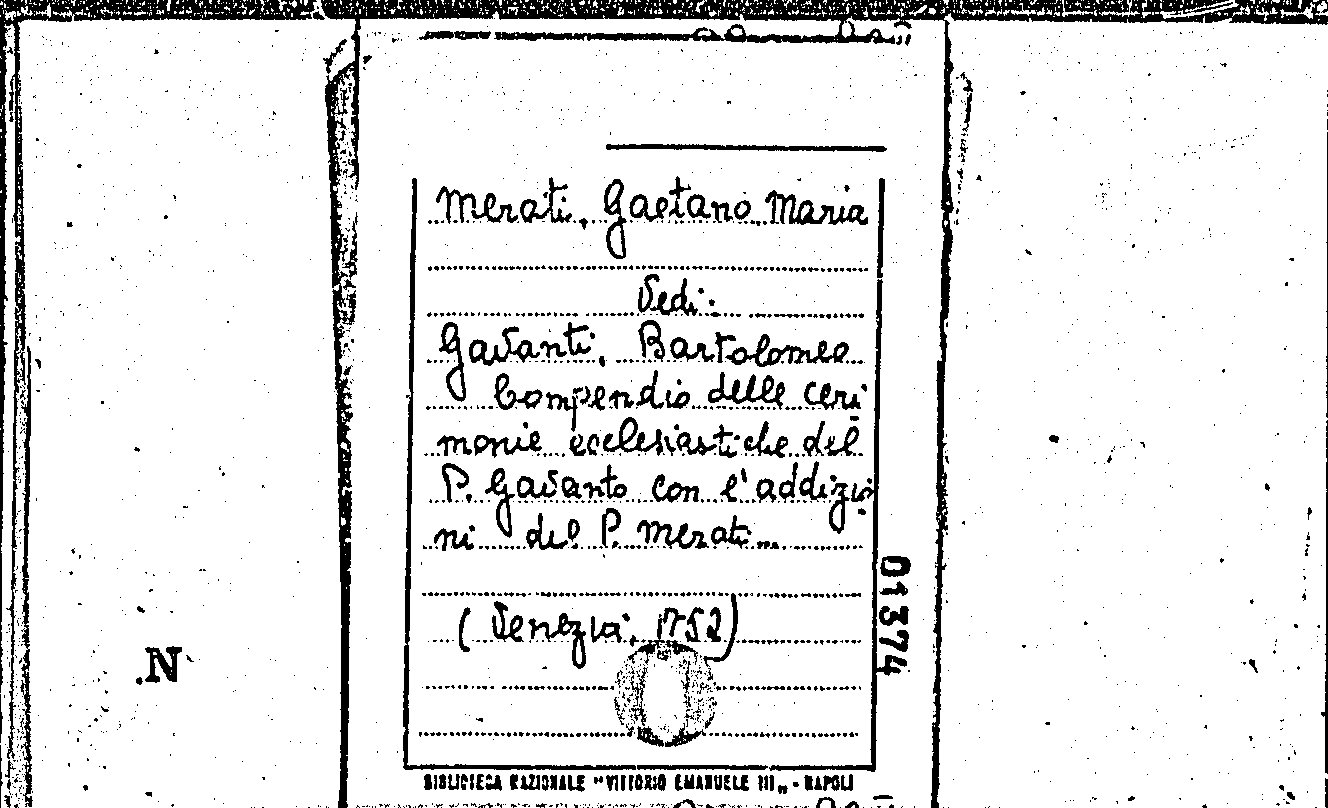 Merati, Gaetano Maria
Vedi:
Gavanti, Bartolomeo
Compendio delle ceri
monie ecclesiastiche del
P. Gavanto con l'addizio
ni del P. Merati...
(Venezia, 1752)
01374
.N
BIBLIOTECA NAZIONALE "VITTORIO EMANUELE III„ - NAPOLI